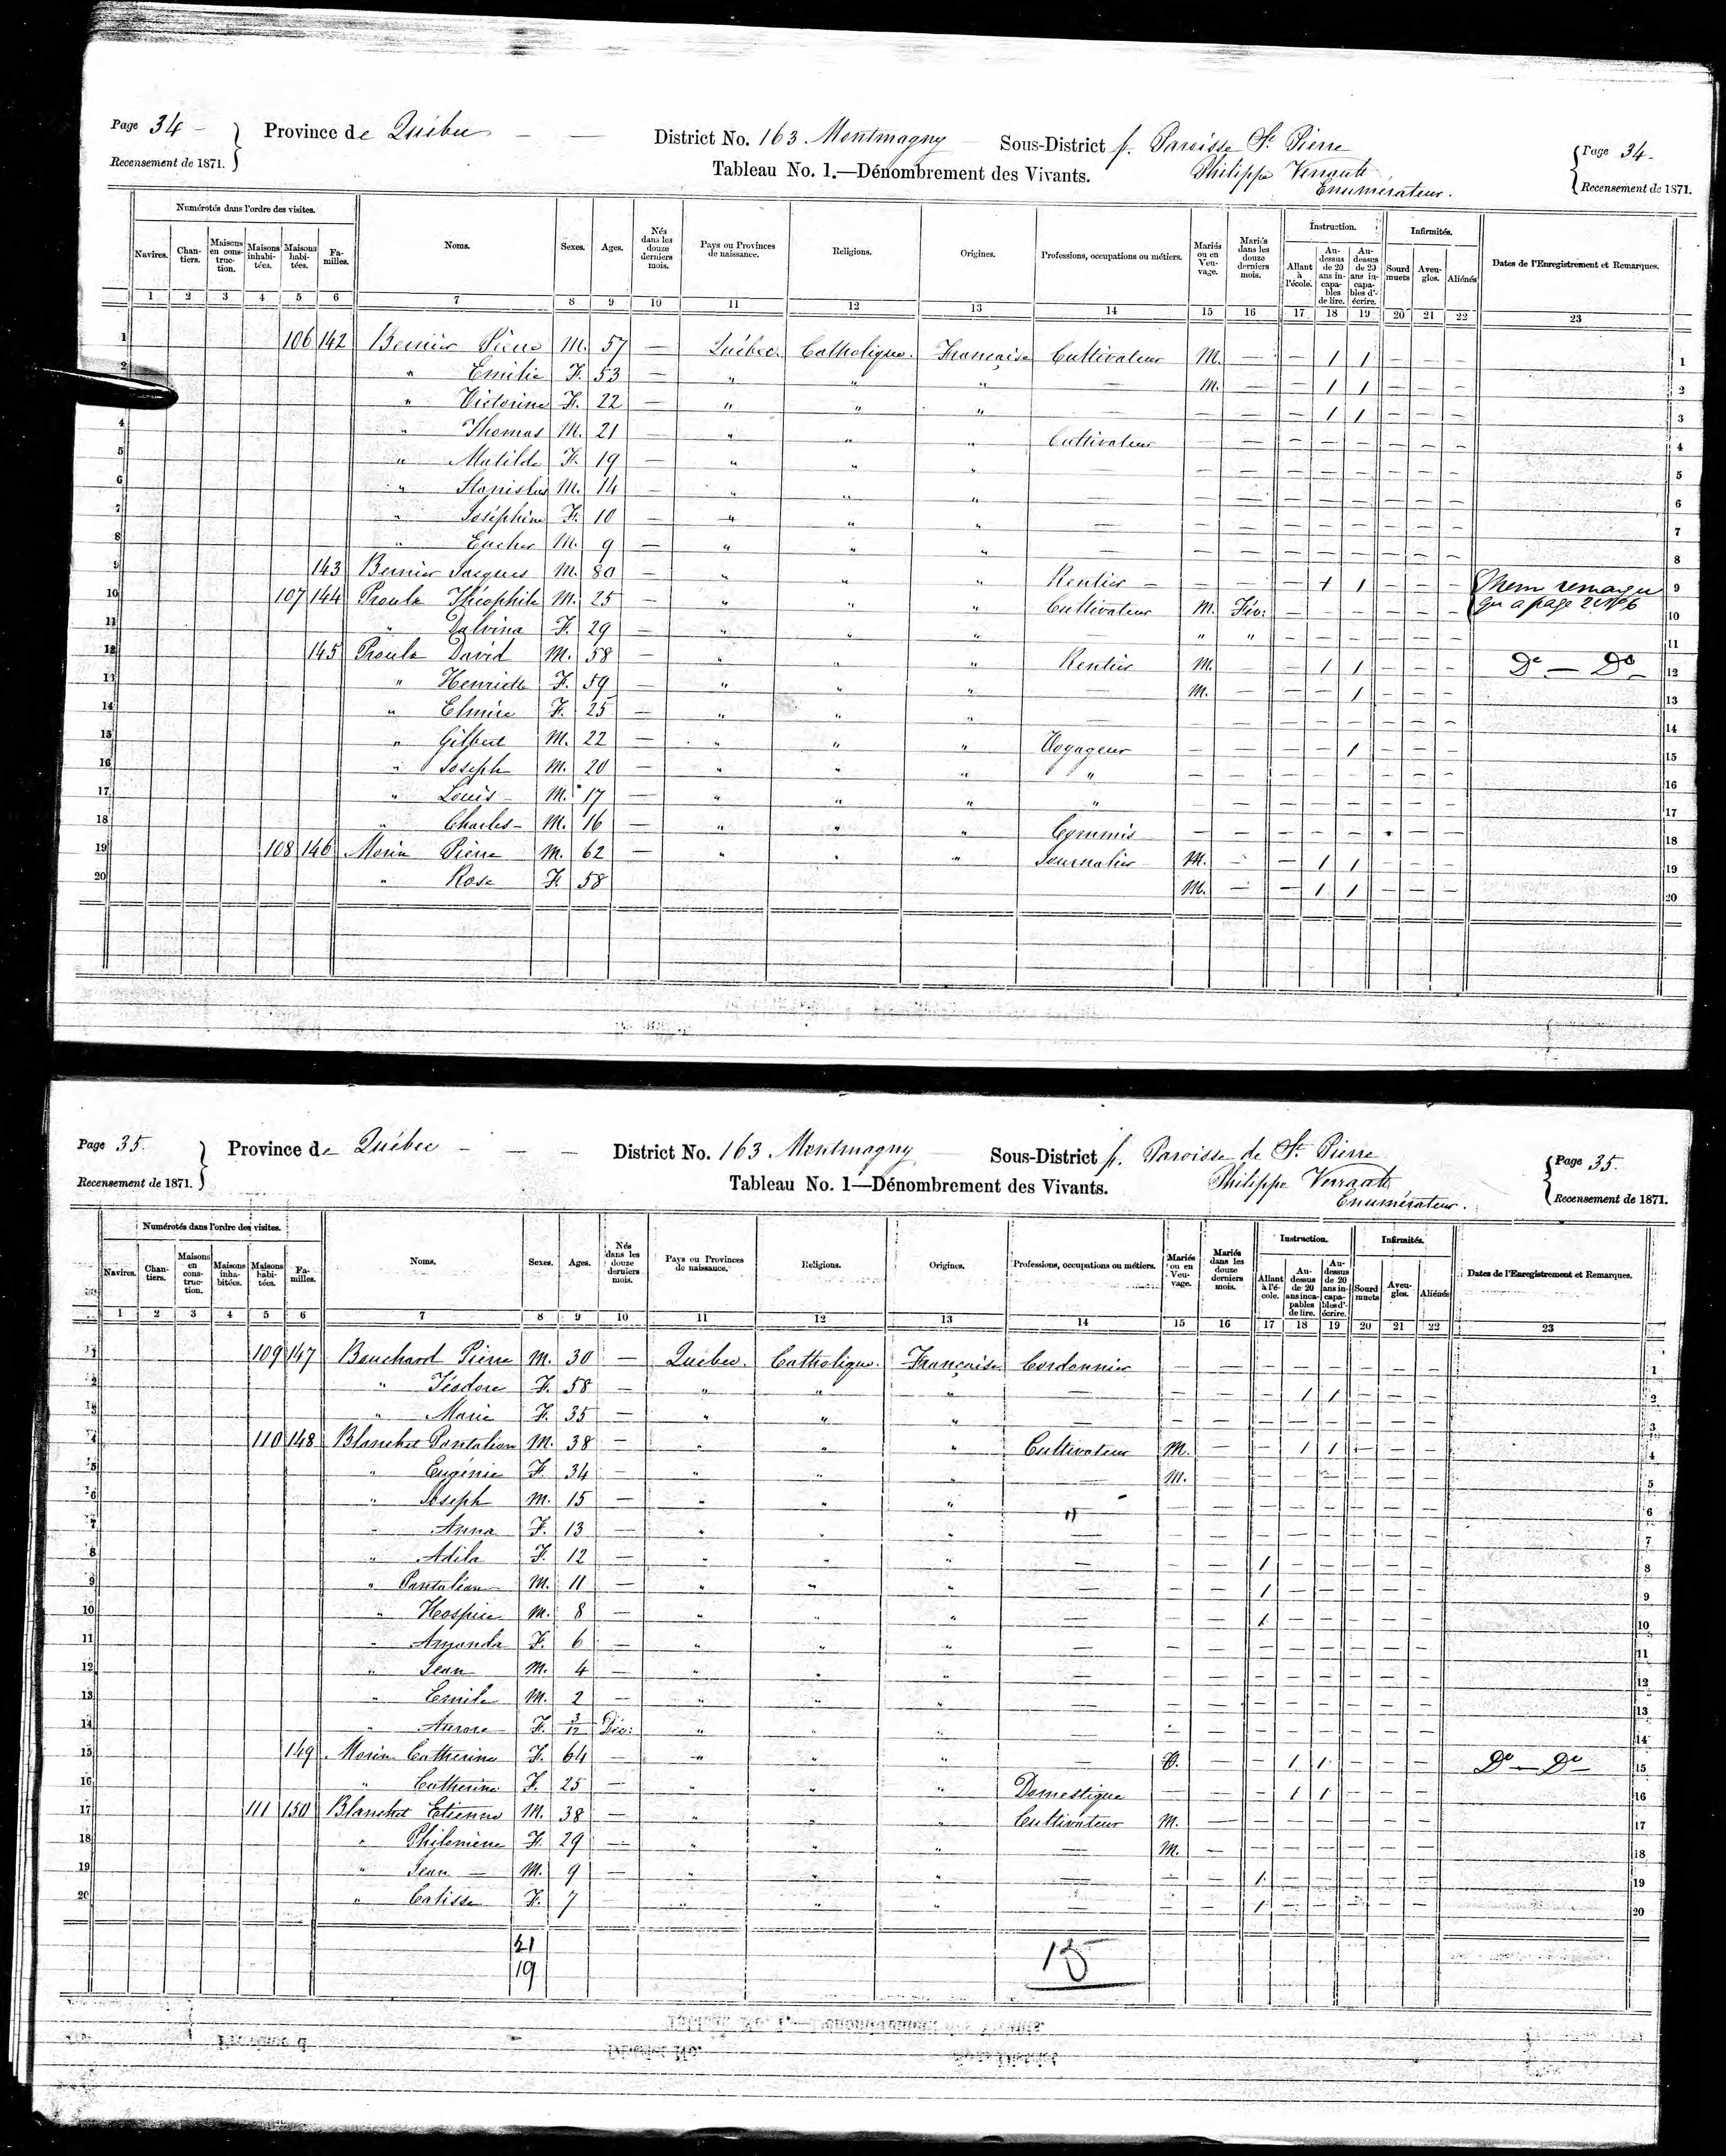 Page 34 - Province de Québec - — District No. 163 Montmagny Sous-District f. Paroisse St. Pierre Page 34-
Recensement de 1871. Tableau No. 1.—Dénombrement des Vivants. Philippe Verrault Recensement de 1871.
Enumérateur.
Numérotés dans l'ordre des visites. Instruction. Infirmités.
Navires. Chantiers. Maisons en construction. Maisons inhabitées. Maisons habitées. Familles. Noms. Sexes. Ages. Nés dans les douze derniers mois. Pays ou Provinces de naissance. Religions. Origines. Professions, occupations ou métiers. Mariés ou en Veuvage. Mariés dans les douze derniers mois. Allant à l'école. Au-dessus de 20 ans incapables de lire. Au-dessus de 20 ans incapables d'écrire. Sourd muets Aveugles. Aliénés Dates de l'Enregistrement et Remarques.
1 2 3 4 5 6 7 8 9 10 11 12 13 14 15 16 17 18 19 20 21 22 23
1 106 142 Bernier Pierre M. 57 — Québec. Catholique. Française Cultivateur M. — — 1 1 — — — 1
2 " Emilie F. 53 — " " " — M. — — 1 1 — — — 2
" Victorine F. 22 — " " " — — — — 1 1 — — — 3
4 " Thomas M. 21 — " " " Cultivateur — — — — — — — — 4
5 " Matilde F. 19 — " " " — — — — — — — — — 5
6 " Stanislas M. 14 — " " " — — — — — — — — — 6
7 " Joséphine F. 10 — " " " — — — — — — — — — 7
8 " Eucher M. 9 — " " " — — — — — — — — — 8
9 143 Bernier Jacques M. 80 — " " " Rentier — — — — 1 1 — — — Mem remarque 9
10 107 144 Proulx Théophile M. 25 — " " " Cultivateur M. Fév: — — — — — — qu a page 10
11 " Dalvina F. 29 — " " " — " " — — — — — — 11
12 145 Proulx David M. 58 — " " " Rentier M. — 1 1 — — — Do — Do 12
13 " Henriette F. 59 — " " " — M. — — — 1 — — — 13
14 " Elmire F. 25 — " " " — — — — — — — — — 14
15 " Gilbert M. 22 — " " " Voyageur — — — — 1 — — — 15
16 " Joseph M. 20 — " " " " — — — — — — — — 16
17 " Louis M. 17 — " " " " — — — — — — — — 17
18 " Charles - M. 16 — " " " Commis — — — — — — — — 18
19 108 146 Morin Pierre M. 62 — " " " Journalier M. — — 1 1 — — — 19
20 " Rose F. 58 M. — — 1 1 — — — 20
Page 35. Province de Québec - - — District No. 163. Montmagny Sous-District f. Paroisse de St. Pierre Page 35.
Recensement de 1871. Tableau No. 1—Dénombrement des Vivants. Philippe Verrault Recensement de 1871.
Enumérateur.
Numérotés dans l'ordre des visites. Instruction. Infirmités.
Navires. Chantiers. Maisons en construction. Maisons inhabitées. Maisons habitées. Familles. Noms. Sexes. Ages. Nés dans les douze derniers mois. Pays ou Provinces de naissance. Religions. Origines. Professions, occupations ou métiers. Mariés ou en Veuvage. Mariés dans les douze derniers mois. Allant à l'école. Au-dessus de 20 ans incapables de lire. Au-dessus de 20 ans incapables d'écrire. Sourd muets Aveugles. Aliénés Dates de l'Enregistrement et Remarques.
1 2 3 4 5 6 7 8 9 10 11 12 13 14 15 16 17 18 19 20 21 22 23
1 109 147 Bouchard Pierre M. 30 — Quebec. Catholique. Française Cordonnier — — — — — — — — 1
2 " Tésdore F. 58 — " " " — — — — 1 1 — — — 2
3 " Marie F. 35 — " " " — — — — — — — — — 3
4 110 148 Blanchet Pantaléon M. 38 — " " " Cultivateur M. — — 1 1 — — — 4
5 " Eugénie F. 34 — " " " M. — — — — — — — 5
6 " Joseph M. 15 — " " " " — — — — — — — — 6
7 " Anna F. 13 — " " " — — — — — — — — — 7
8 " Adila F. 12 — " " " — — — 1 — — — — — 8
9 " Pantaléon M. 11 — " " " — — — 1 — — — — — 9
10 " Hospice M. 8 — " " " — — — 1 — — — — — 10
11 " Amanda F. 6 — " " " — — — — — — — — — 11
12 " Jean M. 4 — " " " — — — — — — — — — 12
13 " Emile M. 2 — " " " — — — — — — — — — 13
14 " Aurore F. 3/12 Déc: " " " — — — — — — — — — 14
15 149 Morin Catherine F. 64 — " " " V. — — 1 1 — — — Do — Do 15
16 " Catherine F. 25 — " " " Domestique — — — 1 1 — — — 16
17 111 150 Blanchet Etienne M. 38 — " " " Cultivateur M. — — — — — — — 17
18 " Philomène F. 29 — " " " — M. — — — — — — — 18
19 " Jean — M. 9 — " " " — — — 1 — — — — — 19
20 " Calisse F. 7 — " " " — — — 1 — — — — — 20
21
19
15